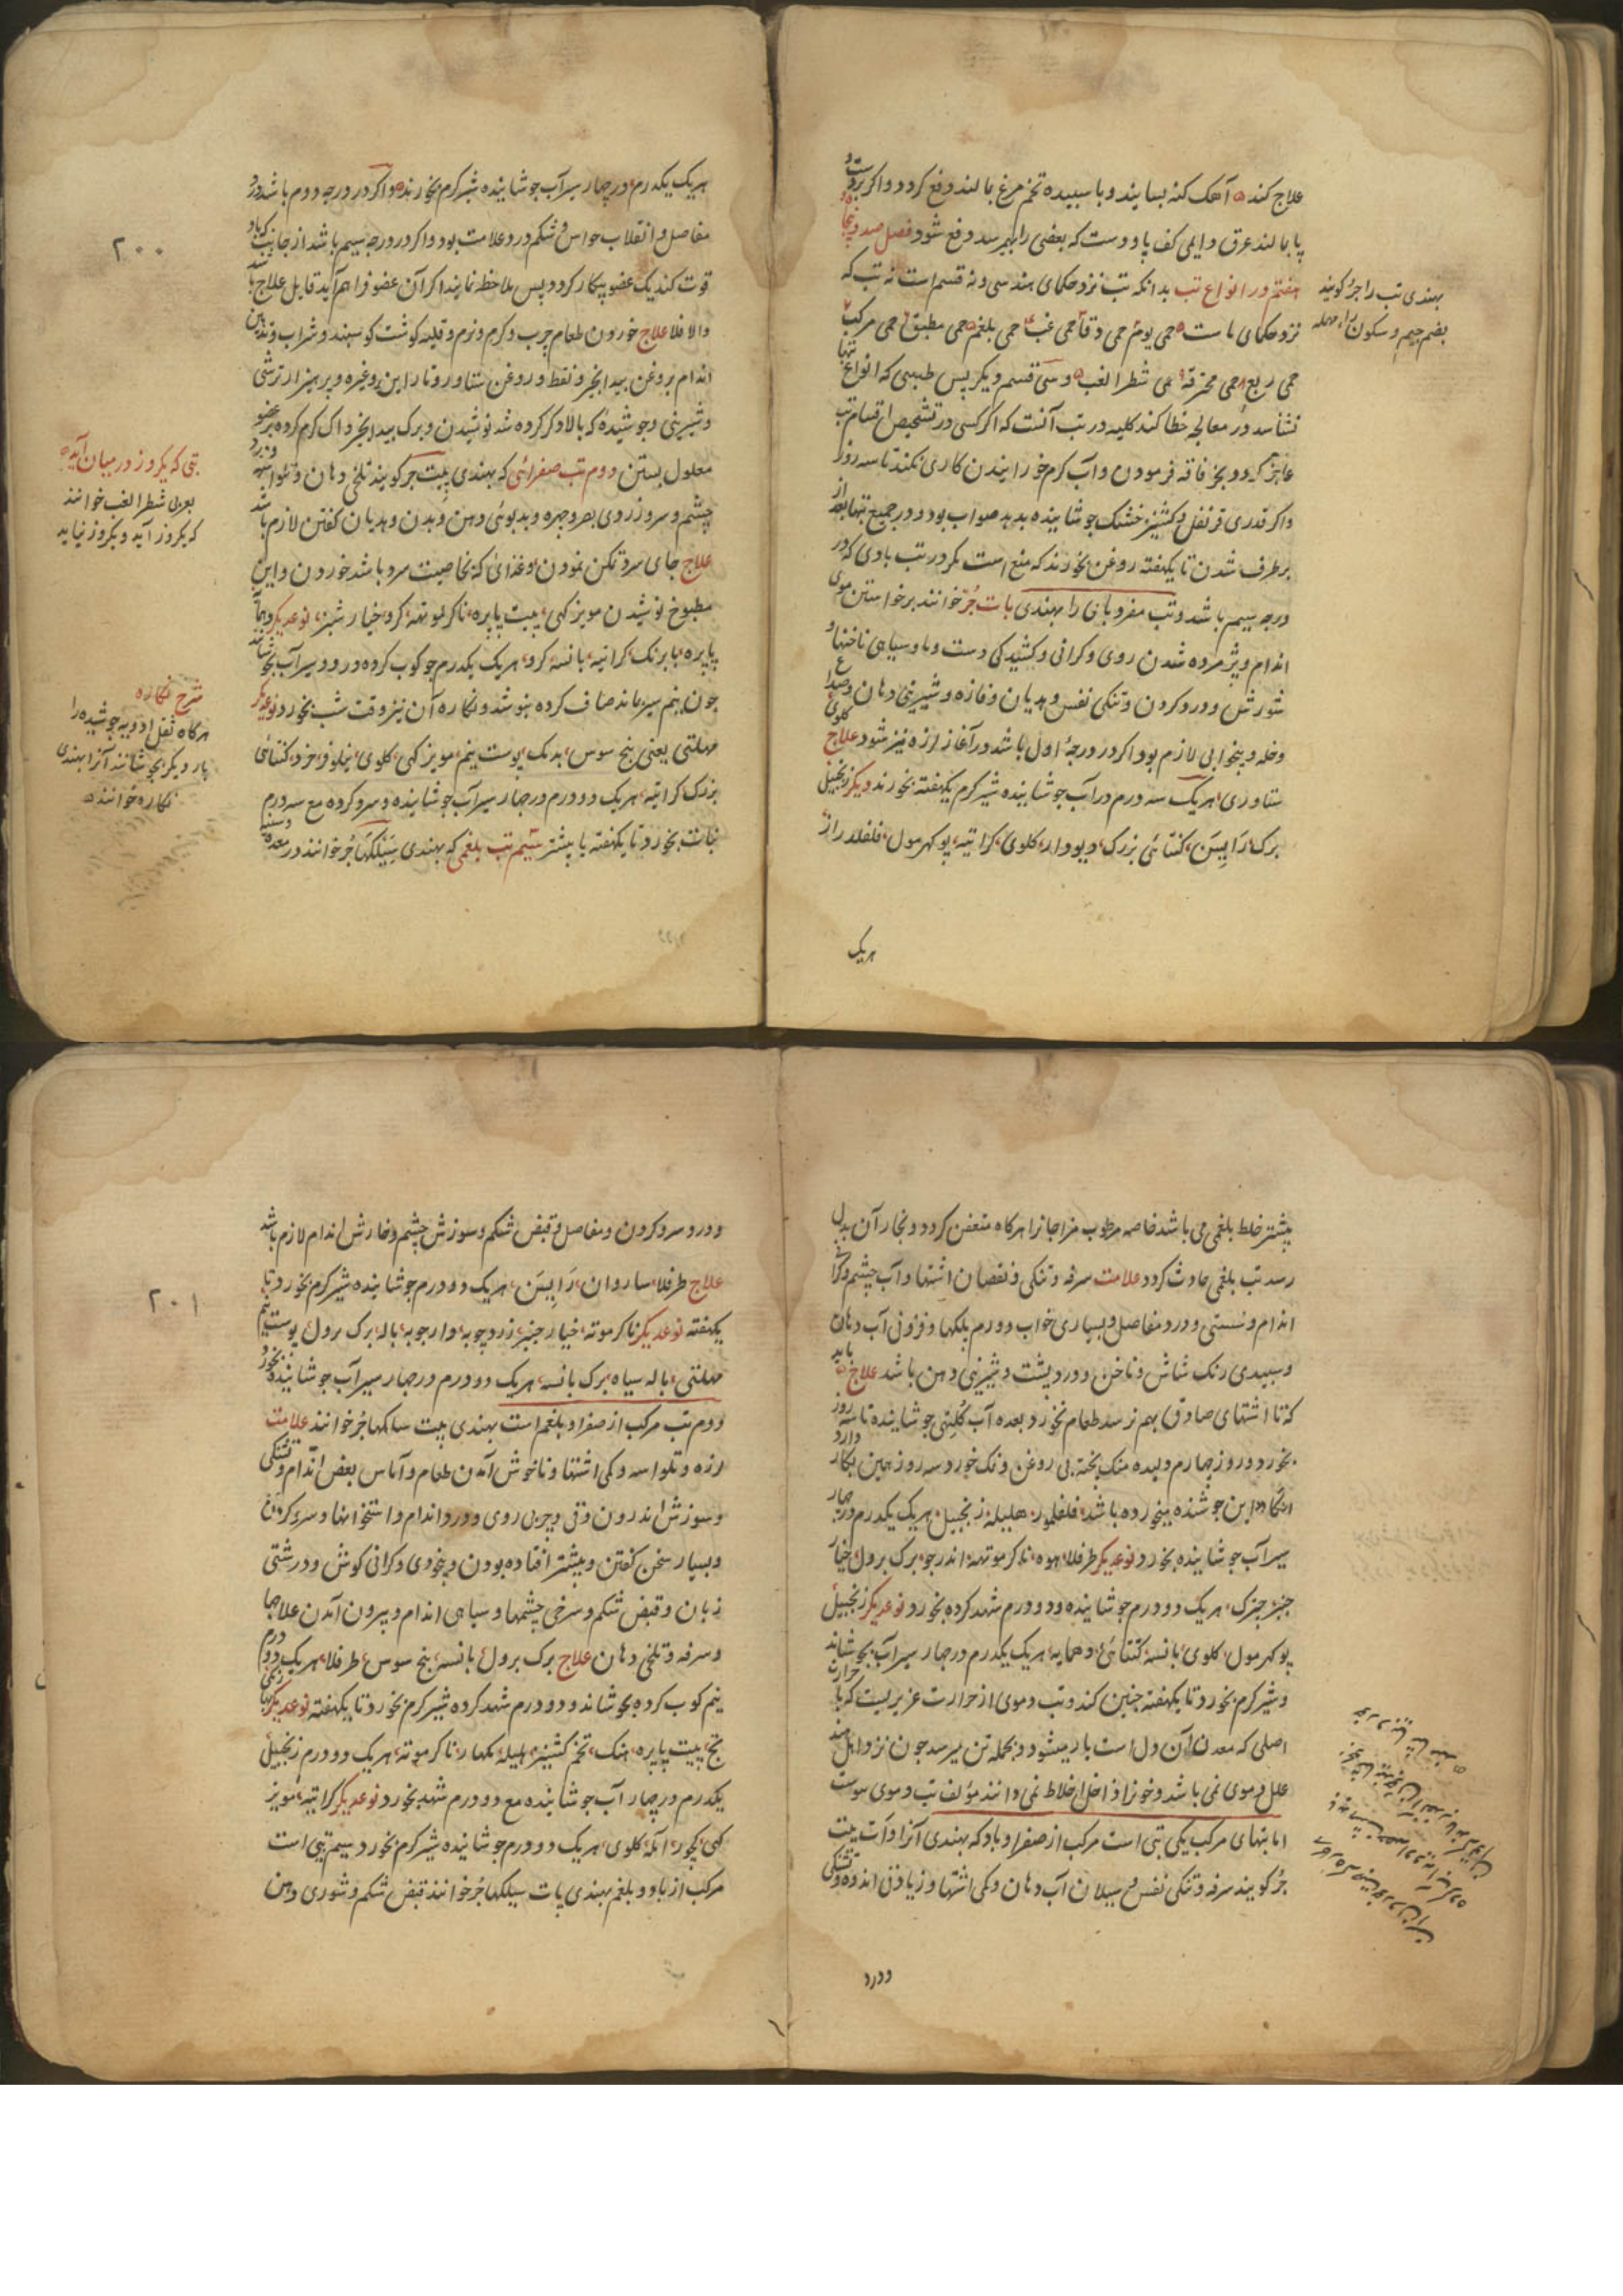 علاج کند آهک کنه بسایند و با سبیده تخم مرغ بمالند دفع کردد و اکر بر دست و
پا بمالند عرق دایمی کف پا و دست که بعضی را بکیرسد دفع شود فصل صد و پنجاه و
هفتم در انواع تب بدانکه تب نزد حکمای هند سی و نه قسم است نه تب که
نزد حکمای ماست حمی یوم حمی دق حمی غب حمی بلغم حمی مطبق حمی مرکب
حمی ربع حمی محرقه حمی شطر الغب و سی قسم دیکر پس طبیبی که انواع تبها
نشناسد در معالجه خطا کند کلیه در تب آنست که اکر کسی در تشخیص اقسام تب
عاجز آید و بجز فاقه فرمودن و آب کرم خورانیدن کاری نکند تا سه روز
و اکر قدری قرنفل و کشنیز خشک جوشانیده بدهد صواب بود و در جمیع تبها بعد از
برطرف شدن تا یکهفته روغن نخورند که منع است مکر در تب بادی که در
درجه سیم باشد و تب مفرد بادی را بهندی بات جر خوانند برخواستن موی
اندام و پژمرده شدن روی و کرانی و کشیدکی دست و پا و سیاهی ناخنها و
شورش و درد کردن و تنکی نفس و هذیان و فازه و شیرینی دهان و صداع
و خله و بیخوابی لازم بود اکر در درجهٔ اول باشد در آغاز لرزه نیز شود علاج کلوی
ستاوری هریک سه درم در آب جوشانیده شیر کرم یکهفته بخورند دیکر زنجبیل
برک رایسن کتائی بزرک دیودار کلوی کراتیه پوکهرمول فلفلدراز
هریک
بهندی تب را جر کویند
بضم جیم و سکون راء مهمله
هریک یکدرم در چهار سیر آب جوشانیده شیر کرم بخورند و اکر در درجه دوم باشد درد
مفاصل و انقلاب حواس و شکم درد علامت بود و اکر در درجه سیم باشد از جانب که باد
قوت کند یک عضو بیکار کردد پس ملاحظه نمایند اکر آن عضو فراهم آید قابل علاج باشد
و الا فلا علاج خوردن طعام چرب و کرم و نرم و قلیه کوشت کوسپند و شراب و تدهین
اندام بروغن بیدانجیر و نفط و روغن ستاور و ناراین و غیره و پرهیز از ترشی
و شیرینی و جوشیدهٔ که بالا ذکر کرده شد نوشیدن و برک بیدانجیر و آک کرم کرده بر عضو
معلول بستن دوم تب صفرائی که بهندی پت جر کویند تلخی دهان و تلواسه و زردی
چشم و سر و زردی بصر و چهره و بدبوئی دهن و بدن و هذیان کفتن لازم باشد
علاج جای سرد تمکن نمودن و غذائی که بخاصیت سرد باشد خوردن و این
مطبوخ نوشیدن مویز کهی پیت پاپره ناکرموتهه کرو خیار شنبر نوعدیکر دهماآ
پاپره بابرنک کراتیه بانسه کرو هریک یکدرم جو کوب کرده در دو سیر آب بجوشاند
چون نیم سیر بماند صاف کرده بنوشد و نکاره آن نیز وقت شب بخورد نوعدیکر
مهلتی یعنی بیخ سوس پدمک پوست نیم مویز کهی کلوی نیلوفر خرد کتائی
بزرک کراتیه هریک دو درم در چهار سیر آب جوشانیده و سرد کرده مع سه درم
نبات بخورد تا یکهفته یا پیشتر سیم تب بلغمی که بهندی سیلکها جر خوانند در معده و سینه
۲۰۰
تبی که یکروز در میان آید
بعربی شطر الغب خوانند
که یکروز آید و یکروز نیاید
شرح نکاره
هرکاه ثقل ادویه جوشیده را
بار دیکر بجوشانند آنرا بهندی
نکاره خوانند
پیشتر خلط بلغمی می باشد خاصه مرطوب مزاجانرا هرکاه متعفن کردد و بخار آن بدل
رسد تب بلغمی حادث کردد علامت سرفه و تنکی و نقصان اشتها و آب چشم و کرانی
اندام و سستی و درد مفاصل و بسیاری خواب و ورم پلکها و فزونی آب دهان
و سپیدی رنک شاش و ناخن و درد پشت و شیرینی دهن باشد علاج باید
که تا اشتهای صادق بهم نرسد طعام نخورد و بعده آب کلتهی جوشانیده تا سه روز
بخورد و روز چهارم ولیده منک پخته بی روغن و نمک خورد و سه روز همین بکار دارد
آنکاه این جوشنده میخورده باشد فلفلمور هلیله زنجبیل هریک یکدرم در چهار
سیر آب جوشانیده بخورد نوعدیکر طرفلا بهوه ناکرموتهه اندرجو برک برول خیار
چنبر چترک هریک دو درم جوشانیده و دو درم شهد کرده بخورد نوعدیکر زنجبیل
پوکهرمول کلوی بانسه کتتائی دهمایه هریک یکدرم در چهار سیر آب بجوشاند
و شیر کرم بخورد تا یکهفته چنین کند و تب دموی از حرارت غریبیست که با حرارت
اصلی که معدن آن دل است یار میشود و بجمله تن میرسد چون نزد اهل هند
علل دموی نمی باشد و خونرا داخل اخلاط نمی دانند مؤلف تب دموی ننوشت
اما تبهای مرکب یکی تبی است مرکب از صفرا و باد که بهندی آنرا وات پت
جر کویند سرفه و تنکی نفس و سیلان آب دهان و کمی اشتها و زیادتی اندوه و تشنکی
ودرد
و درد سر و کردن و مفاصل و قبض شکم و سوزش چشم و خارش اندام لازم باشد
علاج طرفلا ساروان رایسن هریک دو درم جوشانیده شیر کرم بخورد تا
یکهفته نوعدیکر ناکرموته خیار چنبر زردچوبه دارچوبه باله برک برول پوست نیم
مهلتی باله سیاه برک بانسه هریک دو درم در چهار سیر آب جوشانیده بخورد
دوم تب مرکب از صفرا و بلغم است بهندی پیت سالکها جر خوانند علامت
لرزه و تلواسه و کمی اشتها و ناخوش آمدن طعام و آماس بعض اندام و تشنکی
و سوزش اندرون و قی و چربی روی و درد اندام و استخوانها و سر و کردن
و بسیار سخن کفتن و بیشتر افتاده بودن و بیخودی و کرانی کوش و درشتی
زبان و قبض شکم و سرخی چشمها و سیاهی اندام و بیرون آمدن علاجها
و سرفه و تلخی دهان علاج برک برول بانسه بیخ سوس طرفلا هریک دو درم
نیم کوب کرده بجوشاند و دو درم شهد کرده شیر کرم بخورد تا یکهفته نوعدیکر
تج پیت پاپره هنک تخم کشنیز هلیله ناکرموته هریک دو درم زنجبیل
یکدرم در چهار آب جوشانیده مع دو درم شهد بخورد نوعدیکر کراتیه مویز
کهی کچور آمله کلوی هریک دو درم جوشانیده شیر کرم بخورد سیم تبی است
مرکب از باد و بلغم بهندی بات سیلکها جر خوانند قبض شکم و شوری دهن
۲۰۱